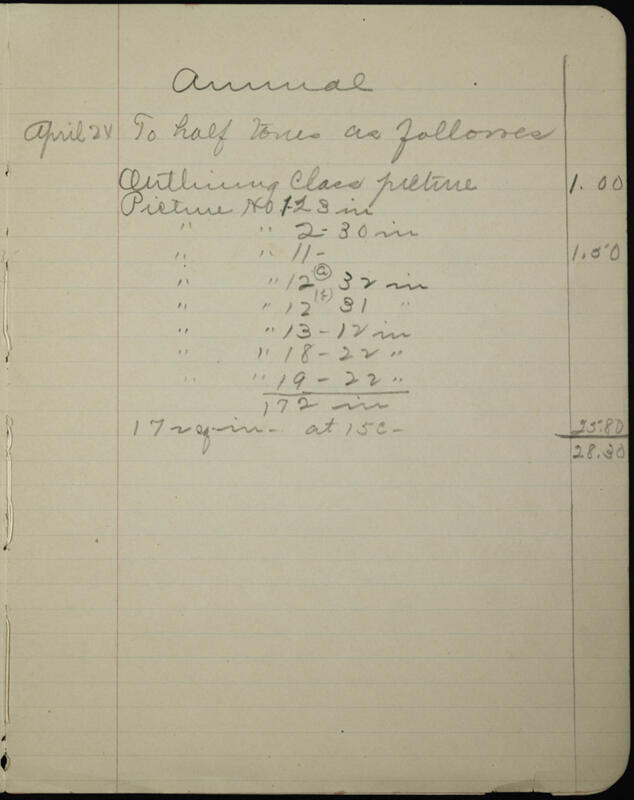 Annual
April 24 To half tones as follows
Outlining Class picture 1.00
Picture No 1-23 in
" " 2-30 in
" " 11- 1.50
" " 12 (a) 32 in
" " 12 (b) 31 "
" " 13-12 in
" " 18-22 "
" " 19-22 "
172 in
172 sq-in- at 15c- 25.80
28.30